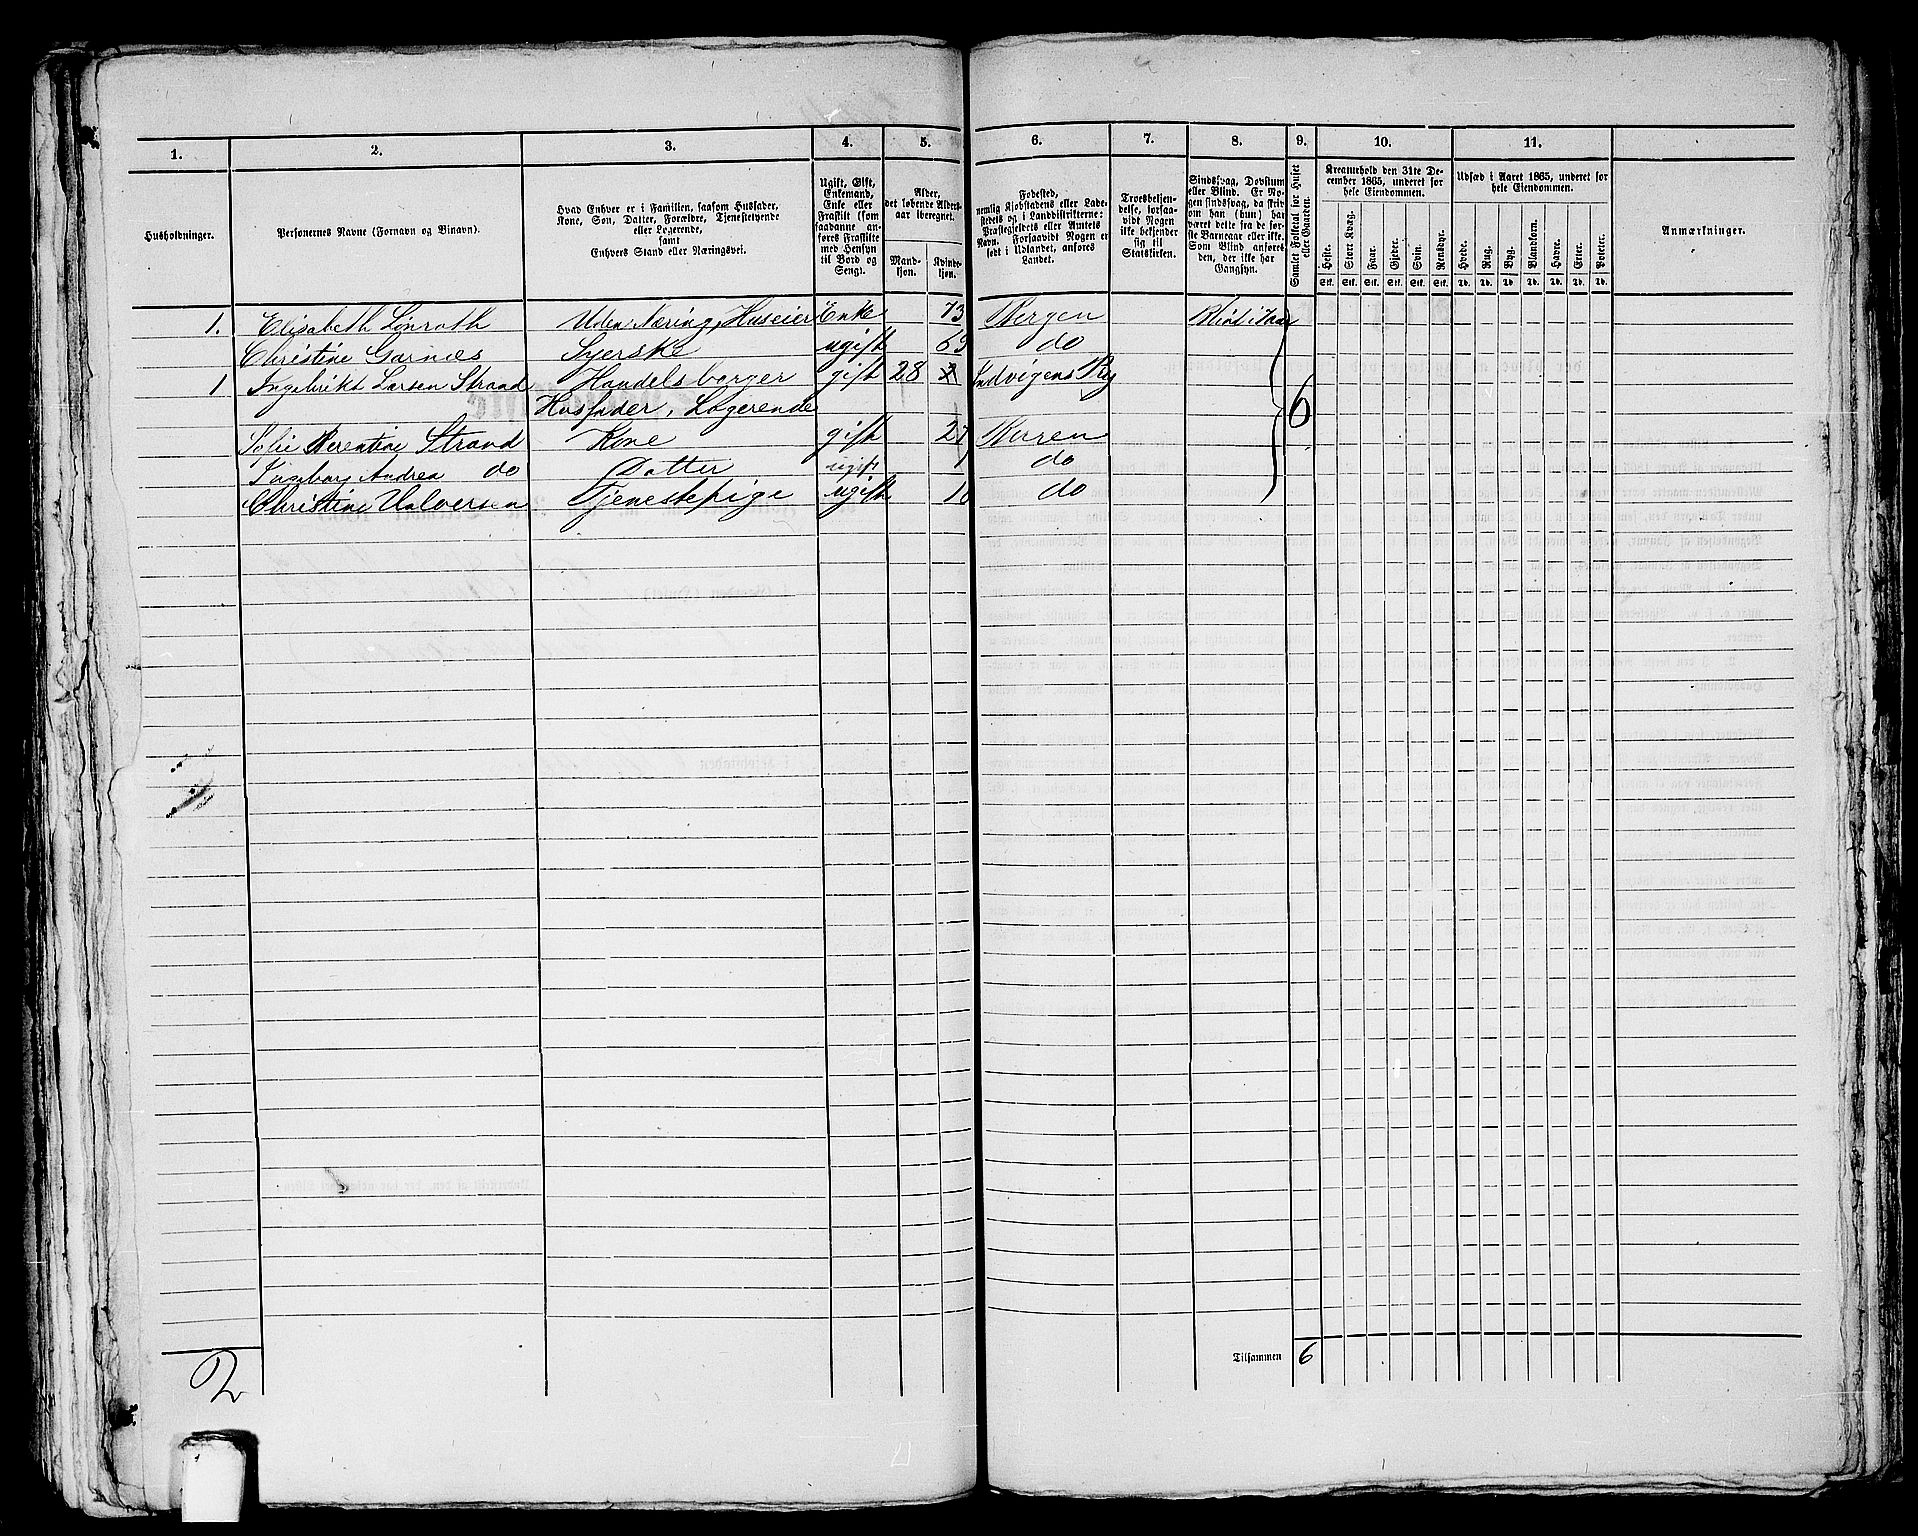 1. 2. 3. 4. 5. 6. 7. 8. 9. 10. 11.
Husholdninger.
Personernes Navne (Fornavn og Binavn).
Hvad Enhver er i Familien, saasom Husfader,
Kone, Søn, Datter, Forældre, Tjenestetyende
eller Logerende,
samt
Enhvers Stand eller Næringsvei.
Ugift, Gift,
Enkemand,
Enke eller
Fraskilt (som
saadanne an-
føres Fraskilte
med Hensyn
til Bord og
Seng).
Alder,
det løbende Alders-
aar iberegnet.
Mand-
kjøn.
Kvinde-
kjøn.
Fødested,
nemlig Kjøbstadens eller Lade-
stedets og i Landdistrikterne:
Præstegjeldets eller Amtets
Navn. Forsaavidt Nogen er
født i Udlandet, anføres
Landet.
Troesbekjen-
delse, forsaa-
vidt Nogen
ikke bekjender
sig til
Statskirken.
Sindssvag, Døvstum
eller Blind. Er No-
gen sindssvag, da skriv
om han (hun) har
været dette fra de før-
ste Barneaar eller ikke.
Som Blind anføres
den, der ikke har
Gangsyn.
Samlet Folketal for Huset
eller Gaarden.
Kreaturhold den 31te De-
cember 1865, underet for
hele Eiendommen.
Heste. Stort Kvæg. Faar. Gjeder. Svin. Rensdyr.
Stk. Stk. Stk. Stk. Stk. Stk.
Udsæd i Aaret 1865, underet for
hele Eiendommen.
Hvede. Rug. Byg. Blandkorn. Havre. Erter. Poteter.
Td. Td. Td. Td. Td. Td. Td.
Anmærkninger.
1. Elisabeth Lönroth Uden Næring, Huseier Enke 73 Bergen Blind
Christine Garnæs Syerske ugift 63 do
1 Ingebrikt Larsen Strand Handelsborger gift 28 Indvigens Pg
Husfader, Logerende 6
Berentine Strand Kone gift 27 Buren
Ingeborg Andrea do Datter ugift 1 do
Christine Halversen Tjenestepige ugift do
Tilsammen 6
2